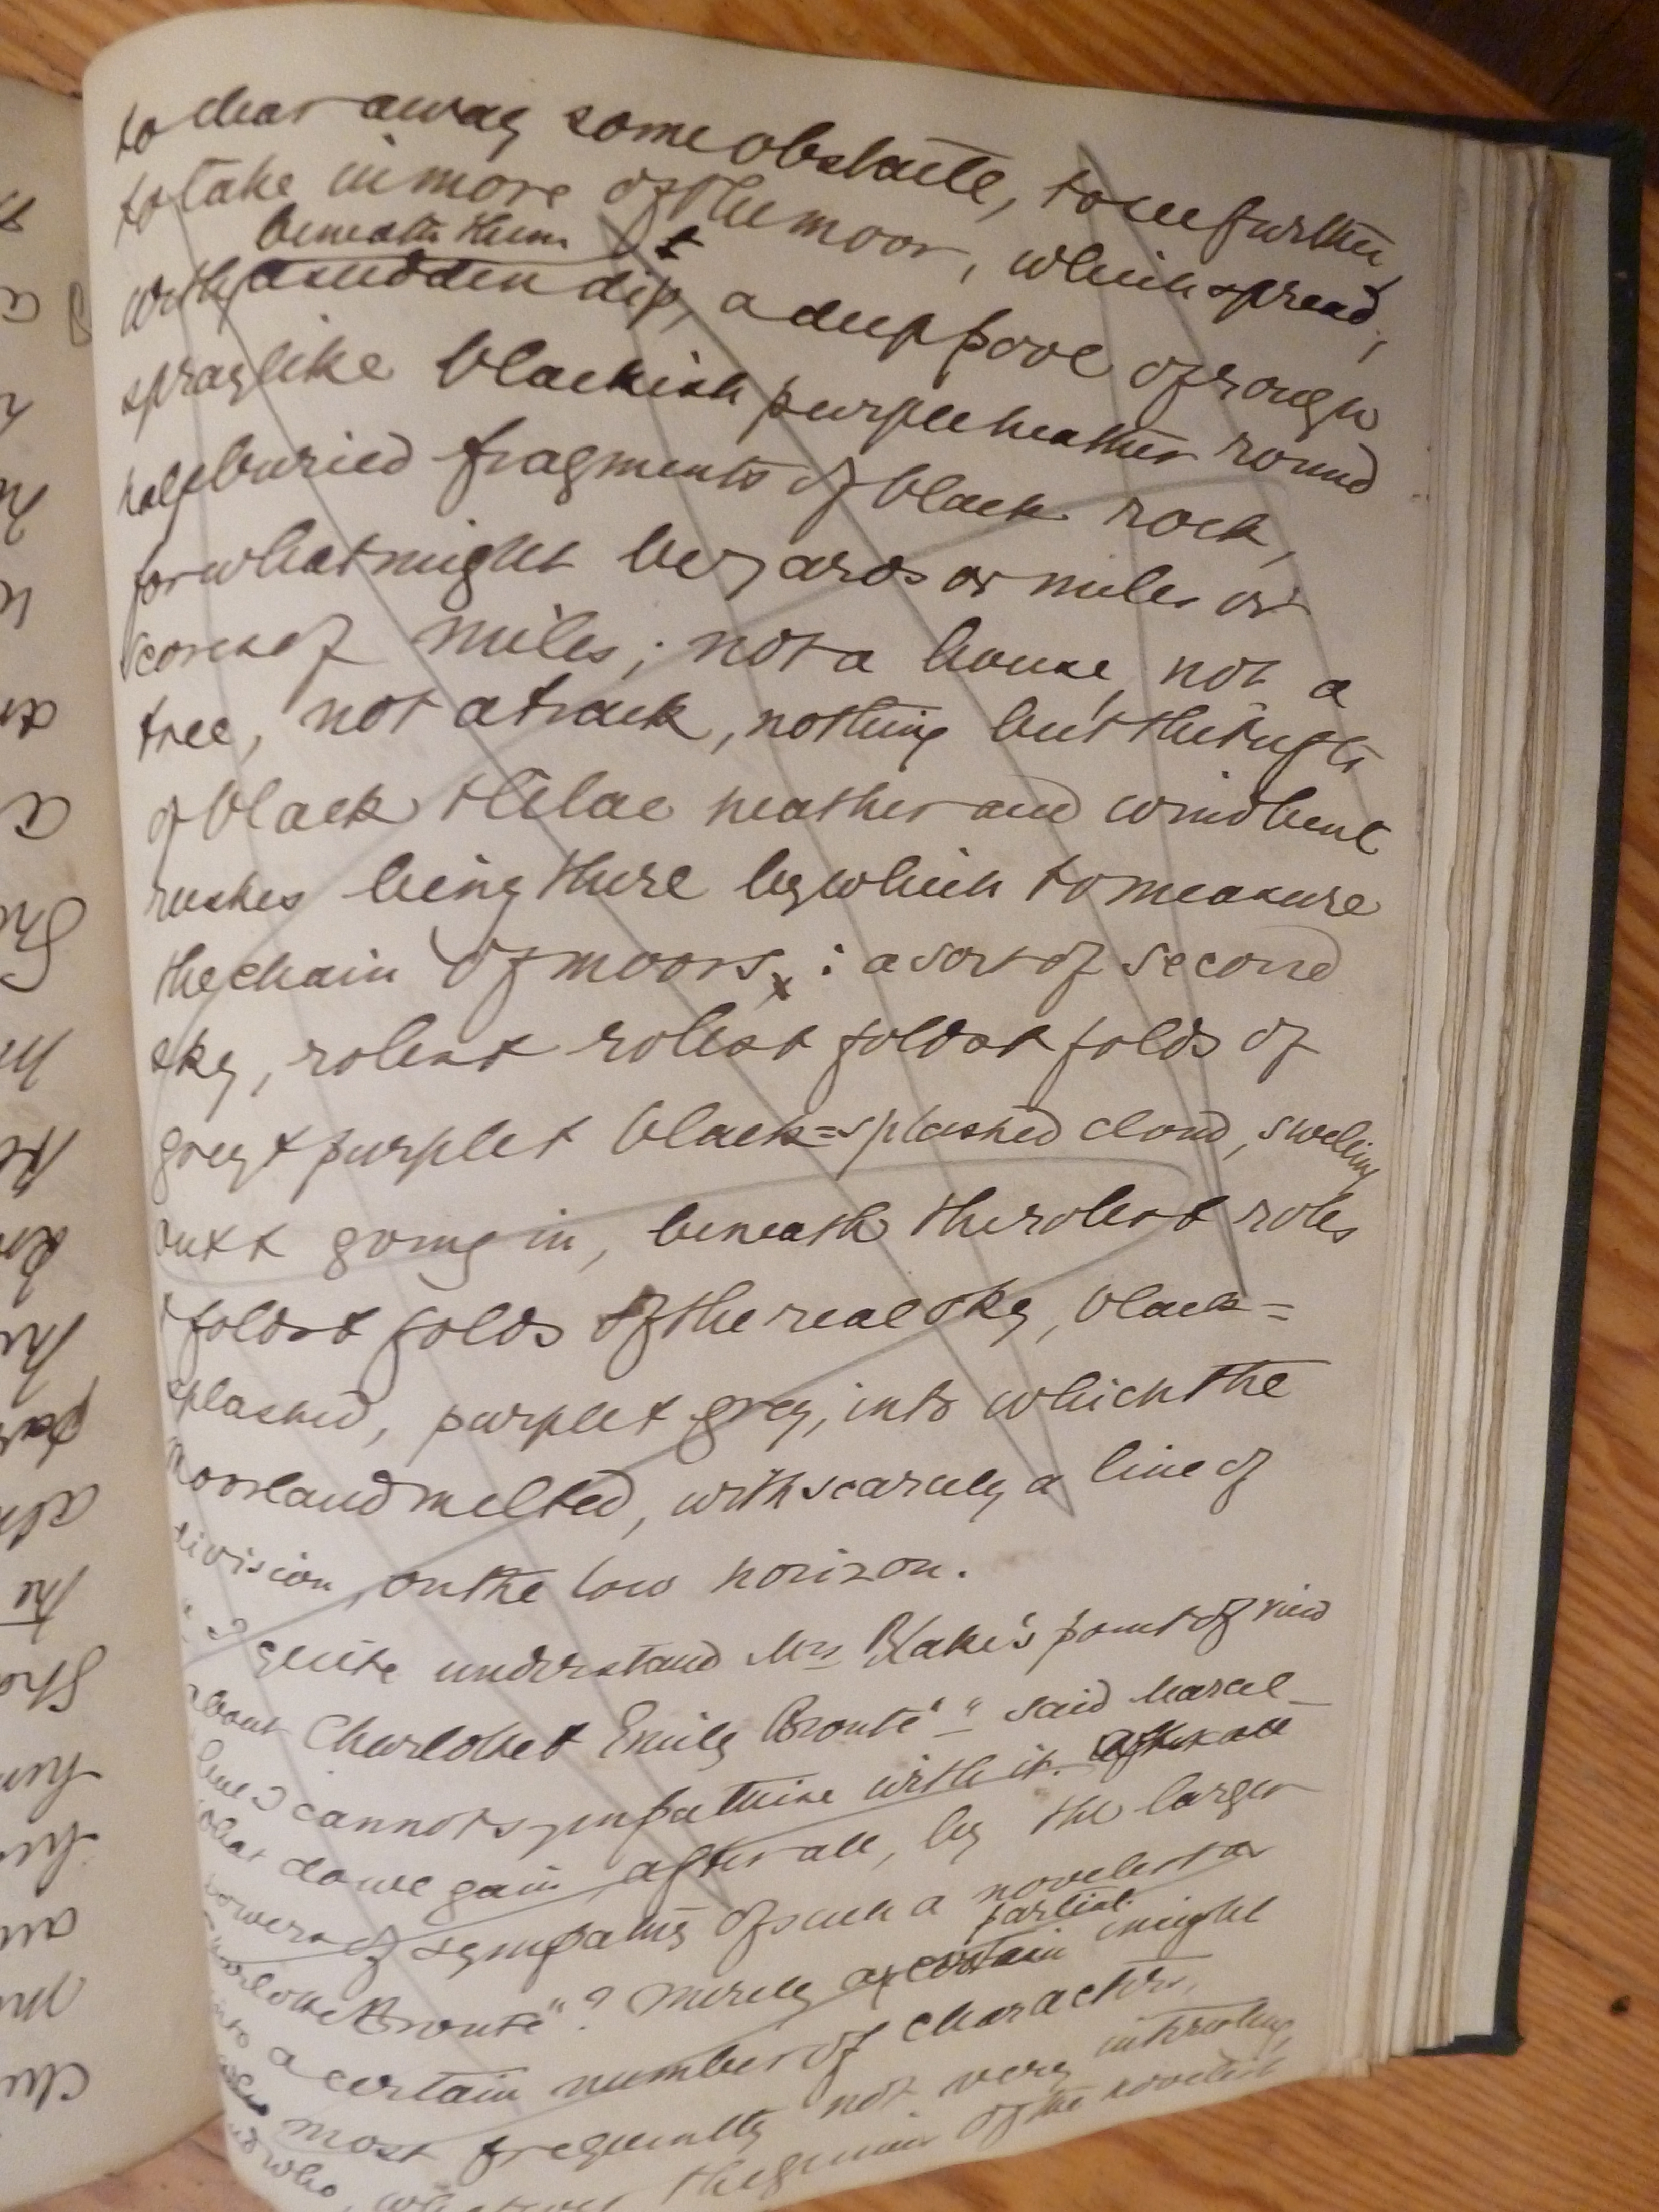 to clear away some obstacle, to see further,
to take in more of the moor, which spread,
beneath them
with a sudden dip, a deep pool of rough
spraylike blackish purple heather round
half buried fragments of black rock,
for what might be yards or miles or
scores of miles; not a house, not a
tree, not a track, nothing but the tufts
of black & lilac heather and wind bent
rushes being there by which to measure
the chain of moors, x : a sort of second
sky, rolls & rolls & folds & folds of
grey & purple & black=splashed cloud, swelling
out & going in, beneath the rolls & rolls
& folds & folds of the real sky, black=
splashed, purple & grey, into which the
moorland melted, with scarcely a line of
division, on the low horizon.
"I quite understand Mrs Blake's point of view
about Charlotte & Emily Brontë" said Marcel _
but I cannot sympathise with it. After all
what do we gain, after all, by the larger
powers of sympathy of such a novelist as
Charlotte Brontë"? Merely a certain partial insight
into a certain number of characters,
who most frequently not very interesting,
and who, whatever the genius of the novelist